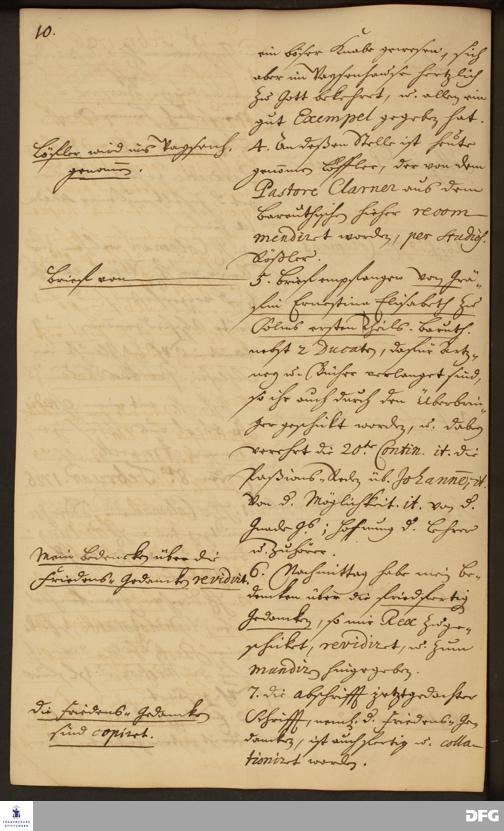 10.
ein böser Knabe gewesen, sich
aber im Waysenhause hertzlich
zu Gott bekehret, u. allen ein
gut Exempel gegeben hat.
Löfler wird ins Waysenh.
genommen.
4. An deßen Stelle ist heute
genommen Löffler, der von dem
Pastore Clarner aus dem
Bareuthischen hieher recom-
mendiret worden, per Studios.
Rößler.
Brief von
5. Brief empfangen von Grä-
fin Ernestina Elisabeth zu
Solms ersten Theils. Baruth.
nebst 2 Ducaten, dafür Artz-
ney u. Bücher verlanget sind,
so ihr auch durch den Überbrin-
ger geschikt worden, u. dabey
verehrt die 20te Contin. it. die
Paßions-Reden üb. Johannem, it.
von d. Möglichkeit. it. von d.
Gnade
Hoffnung d. Lehrer
u. Zuhörer.
Mein Bedencken über die
Friedens-Gedancken revidirt.
6. Nachmittag habe mein Be-
dencken über die friedfertig
Gedancken, so mir Rex zuge-
schicket, revidiret, u. zum
mundiren hingegeben.
die Friedens-Gedancken
sind copiret.
7. die abschrifft jetztgedachter
Schrifft, neml. d. Friedens-Ge-
dancken, ist auch fertig u. colla-
tioniret worden.
FRANCKESCHE
STIFTUNGEN
DFG